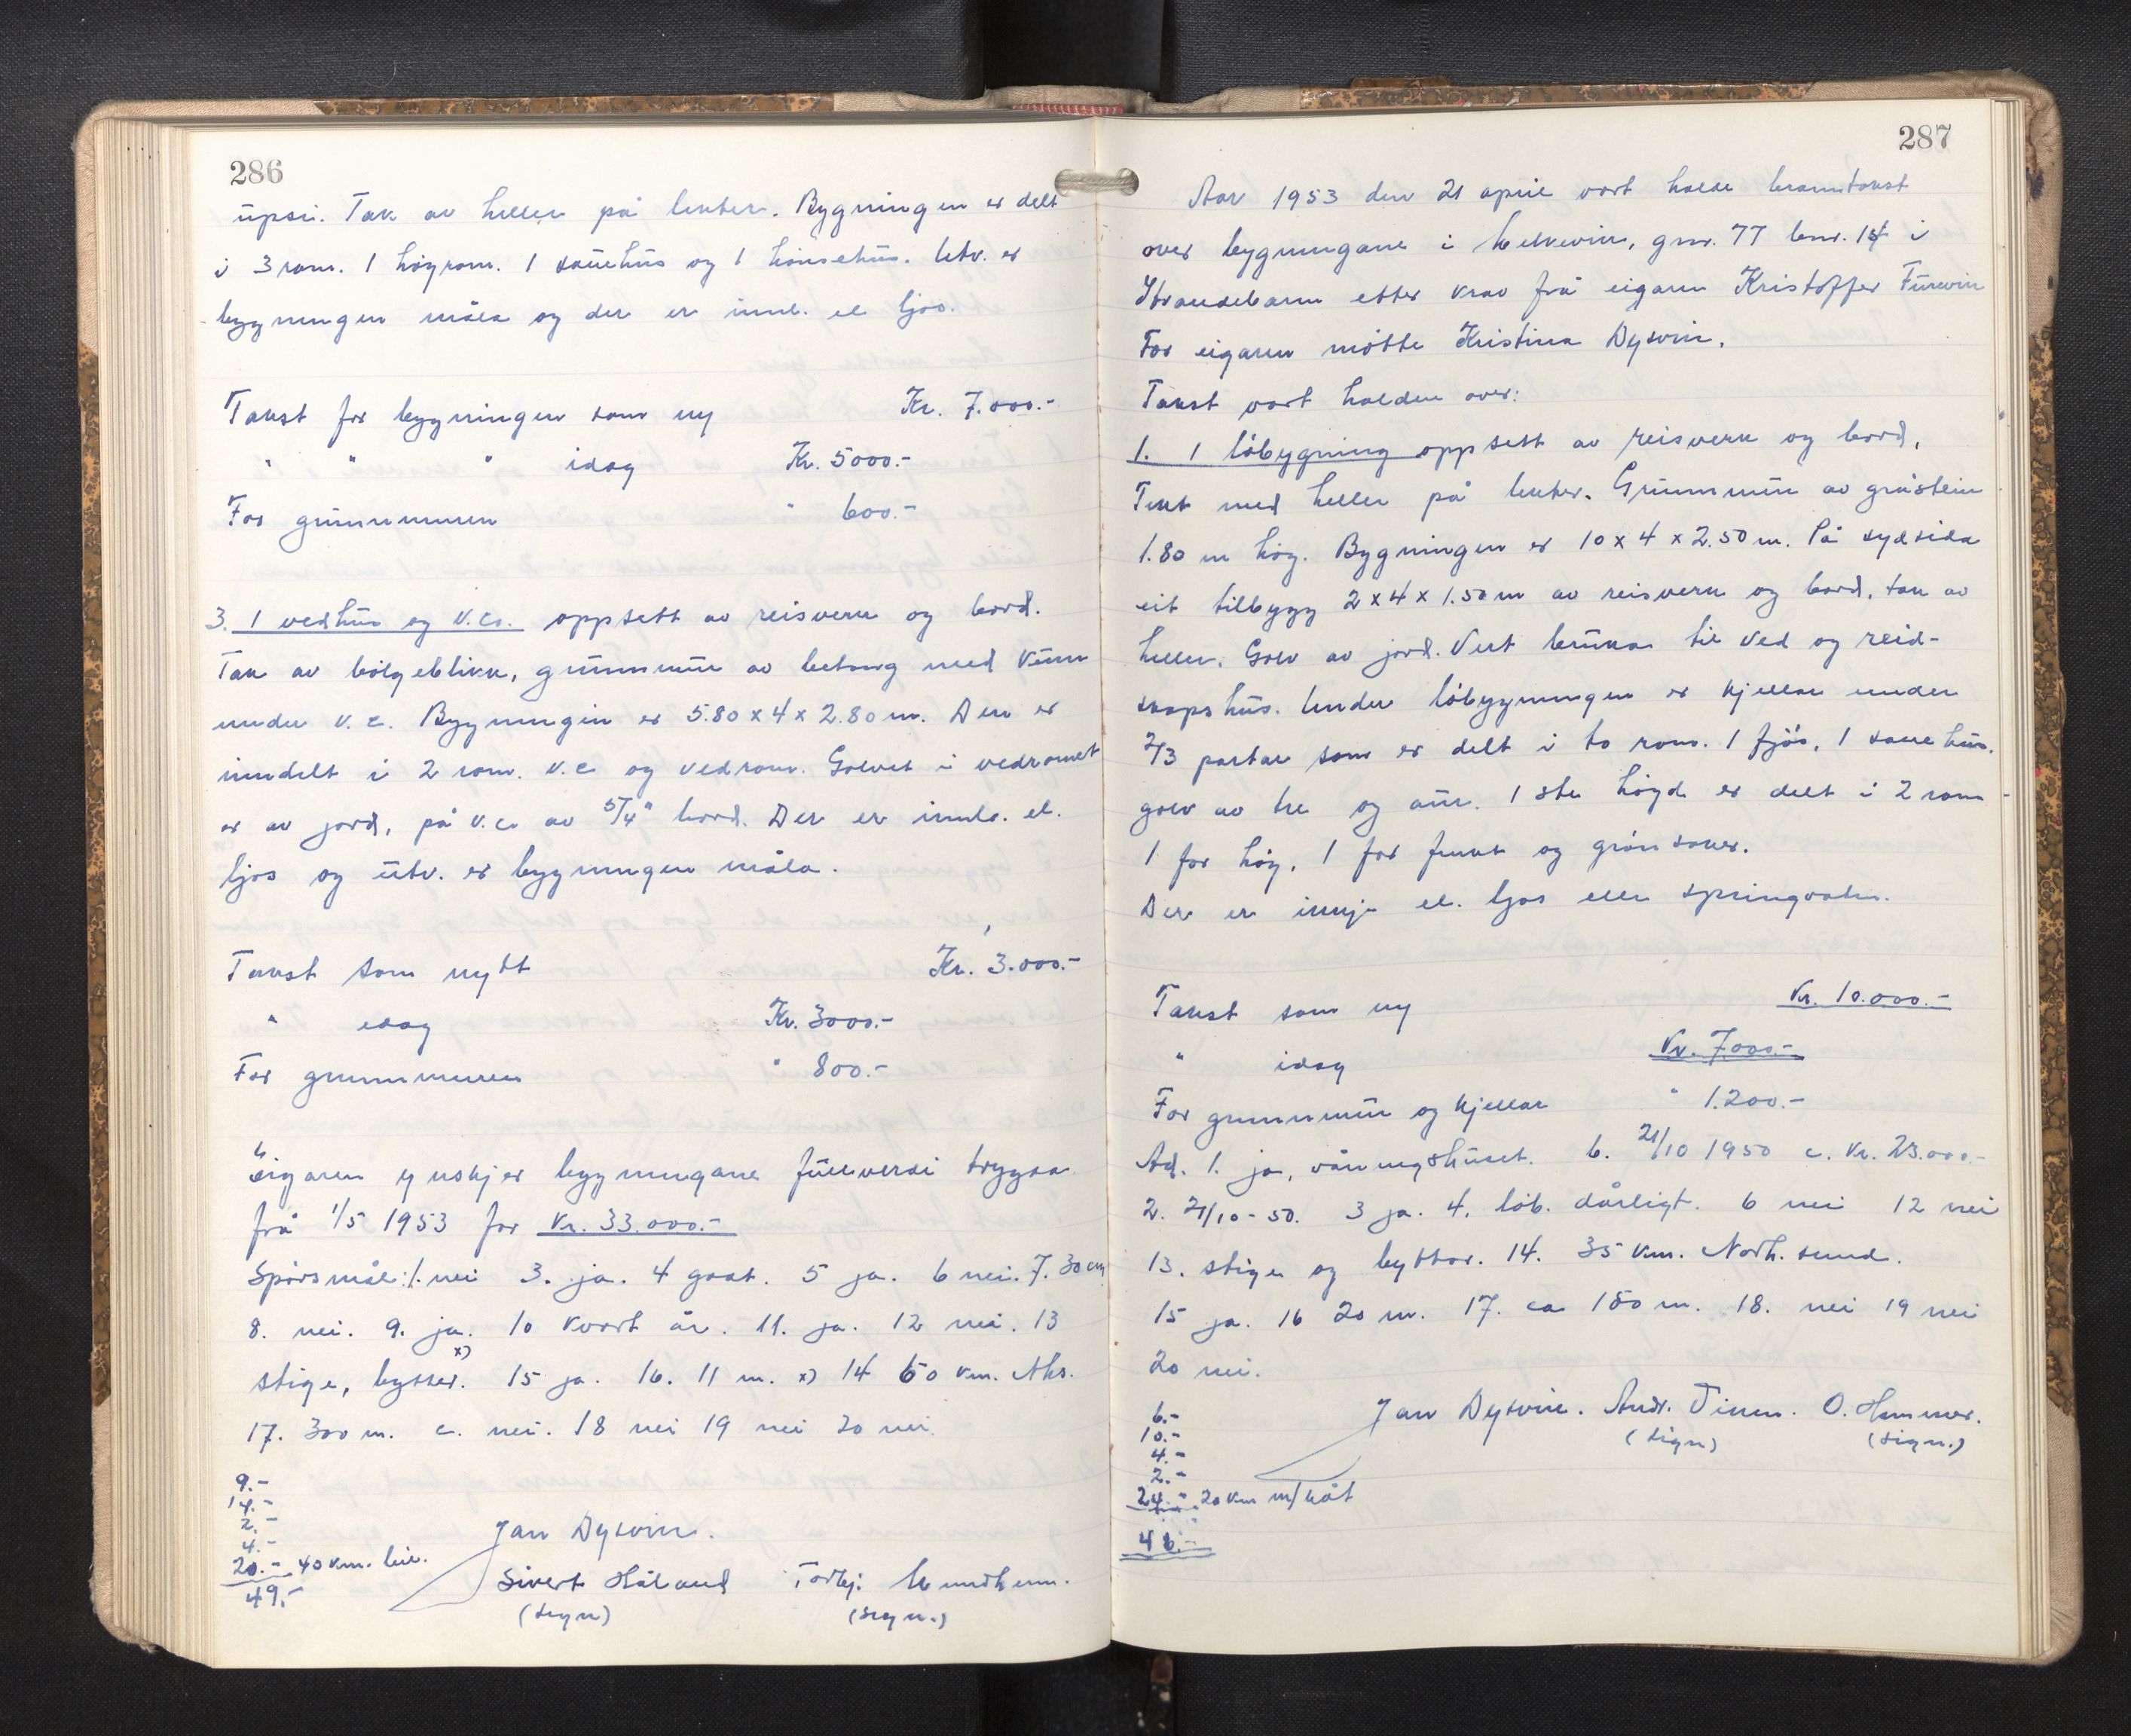 286
upsi. Tak av heller på lekter. Bygningen er delt
i 3 rom. 1 høyrom. 1 sauehus og 1 hønsehus. Utv. er
bygningen måla og der er innl. el ljos.
Takst for bygningen som ny Kr. 7.000.-
" " " idag Kr. 5000.-
For grunnmuren " 600.-
3. 1 vedhus og v.c. oppsett av reisverk og bord.
Tak av bølgeblikk, grunnmur av betong med kum
under v.c. Bygningen er 5.80 x 4 x 2.80 m. Den er
inndelt i 2 rom. v.c og vedrom. Golvet i vedromet
er av jord, på v.c. av 5/4" bord. Der er innl. el.
ljos og utv. er bygningen måla.
Takst som nytt Kr. 3.000.-
" idag Kr. 3000.-
For grunnmuren " 800.-
Eigaren ynskjer bygningane fullverdi trygda
frå 1/5 1953 for Kr. 33.000.-
Spørsmål: 1. nei 3. ja. 4 godt. 5 ja. 6 nei. 7. 30 cm
8. nei. 9. ja. 10 kvart år. 11. ja. 12 nei. 13
stige, bytter. x) 15 ja. 16. 11 m. x) 14 60 km. Nhs.
17. 300 m. c. nei. 18 nei 19 nei 20 nei.
9.-
14.-
2.-
4.-
20.- 40 km. bil.
49.-
Jan Dysvin.
Sivert Håland Torbj. Mundheim.
(sign) (sign.)
287
Aar 1953 den 21 april vart halde branntakst
over bygningane i Melkevin, gnr. 77 bnr. 14 i
Strandebarm etter krav frå eigaren Kristoffer Furevin
For eigaren møtte Kristina Dysvin.
Takst vart halden over:
1. 1 løbygning oppsett av reisverk og bord.
Tekt med heller på lekter. Grunnmur av gråstein
1.80 m høg. Bygningen er 10 x 4 x 2.50 m. På sydsida
eit tilbygg 2 x 4 x 1.50 m av reisverk og bord, tak av
heller. Golv av jord. Vert bruka til ved og reid-
skapshus. Under løbygningen er kjellar under
2/3 partar som er delt i to rom. 1 fjøs, 1 sauehus.
golv av tre og aur. 1ste høgd er delt i 2 rom
1 for høy, 1 for frukt og grønsaker.
Der er innje el. ljos eller springvatn.
Takst som ny Kr. 10.000.-
" idag Kr. 7.000.-
For grunnmur og kjellar " 1.200.-
Ad. 1. ja, våningshuset. b. 21/10 1950 c. Kr. 23.000.-
2. 21/10-50. 3 ja. 4. løb. dårligt. 6 nei 12 nei
13. stige og byttor. 14. 35 km. Norh. sund.
15 ja. 16 20 m. 17. ca 180 m. 18. nei 19 nei
20 nei.
Jan Dysvin. Andr. Tinen. O. Hammer.
(sign) (sign.)
6.-
10.-
4.-
2.-
24.- 20 km m/båt
46.-